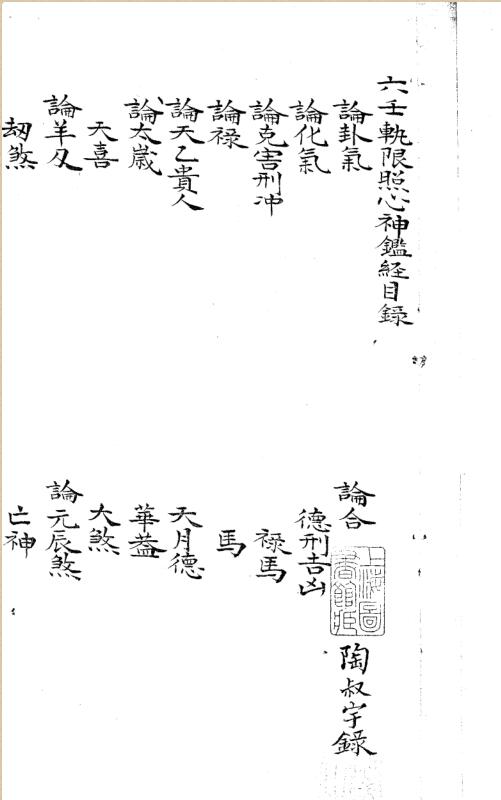 六壬軌限照心神鑑経目録
論卦氣
論合
陶叔宇錄
論化氣
德刑吉凶
論克害刑冲
祿馬
論祿
馬
論天乙貴人
天月德
論太歲
華蓋
天喜
大煞
論羊刄
論元辰煞
刼煞
亡神
上海圖書館